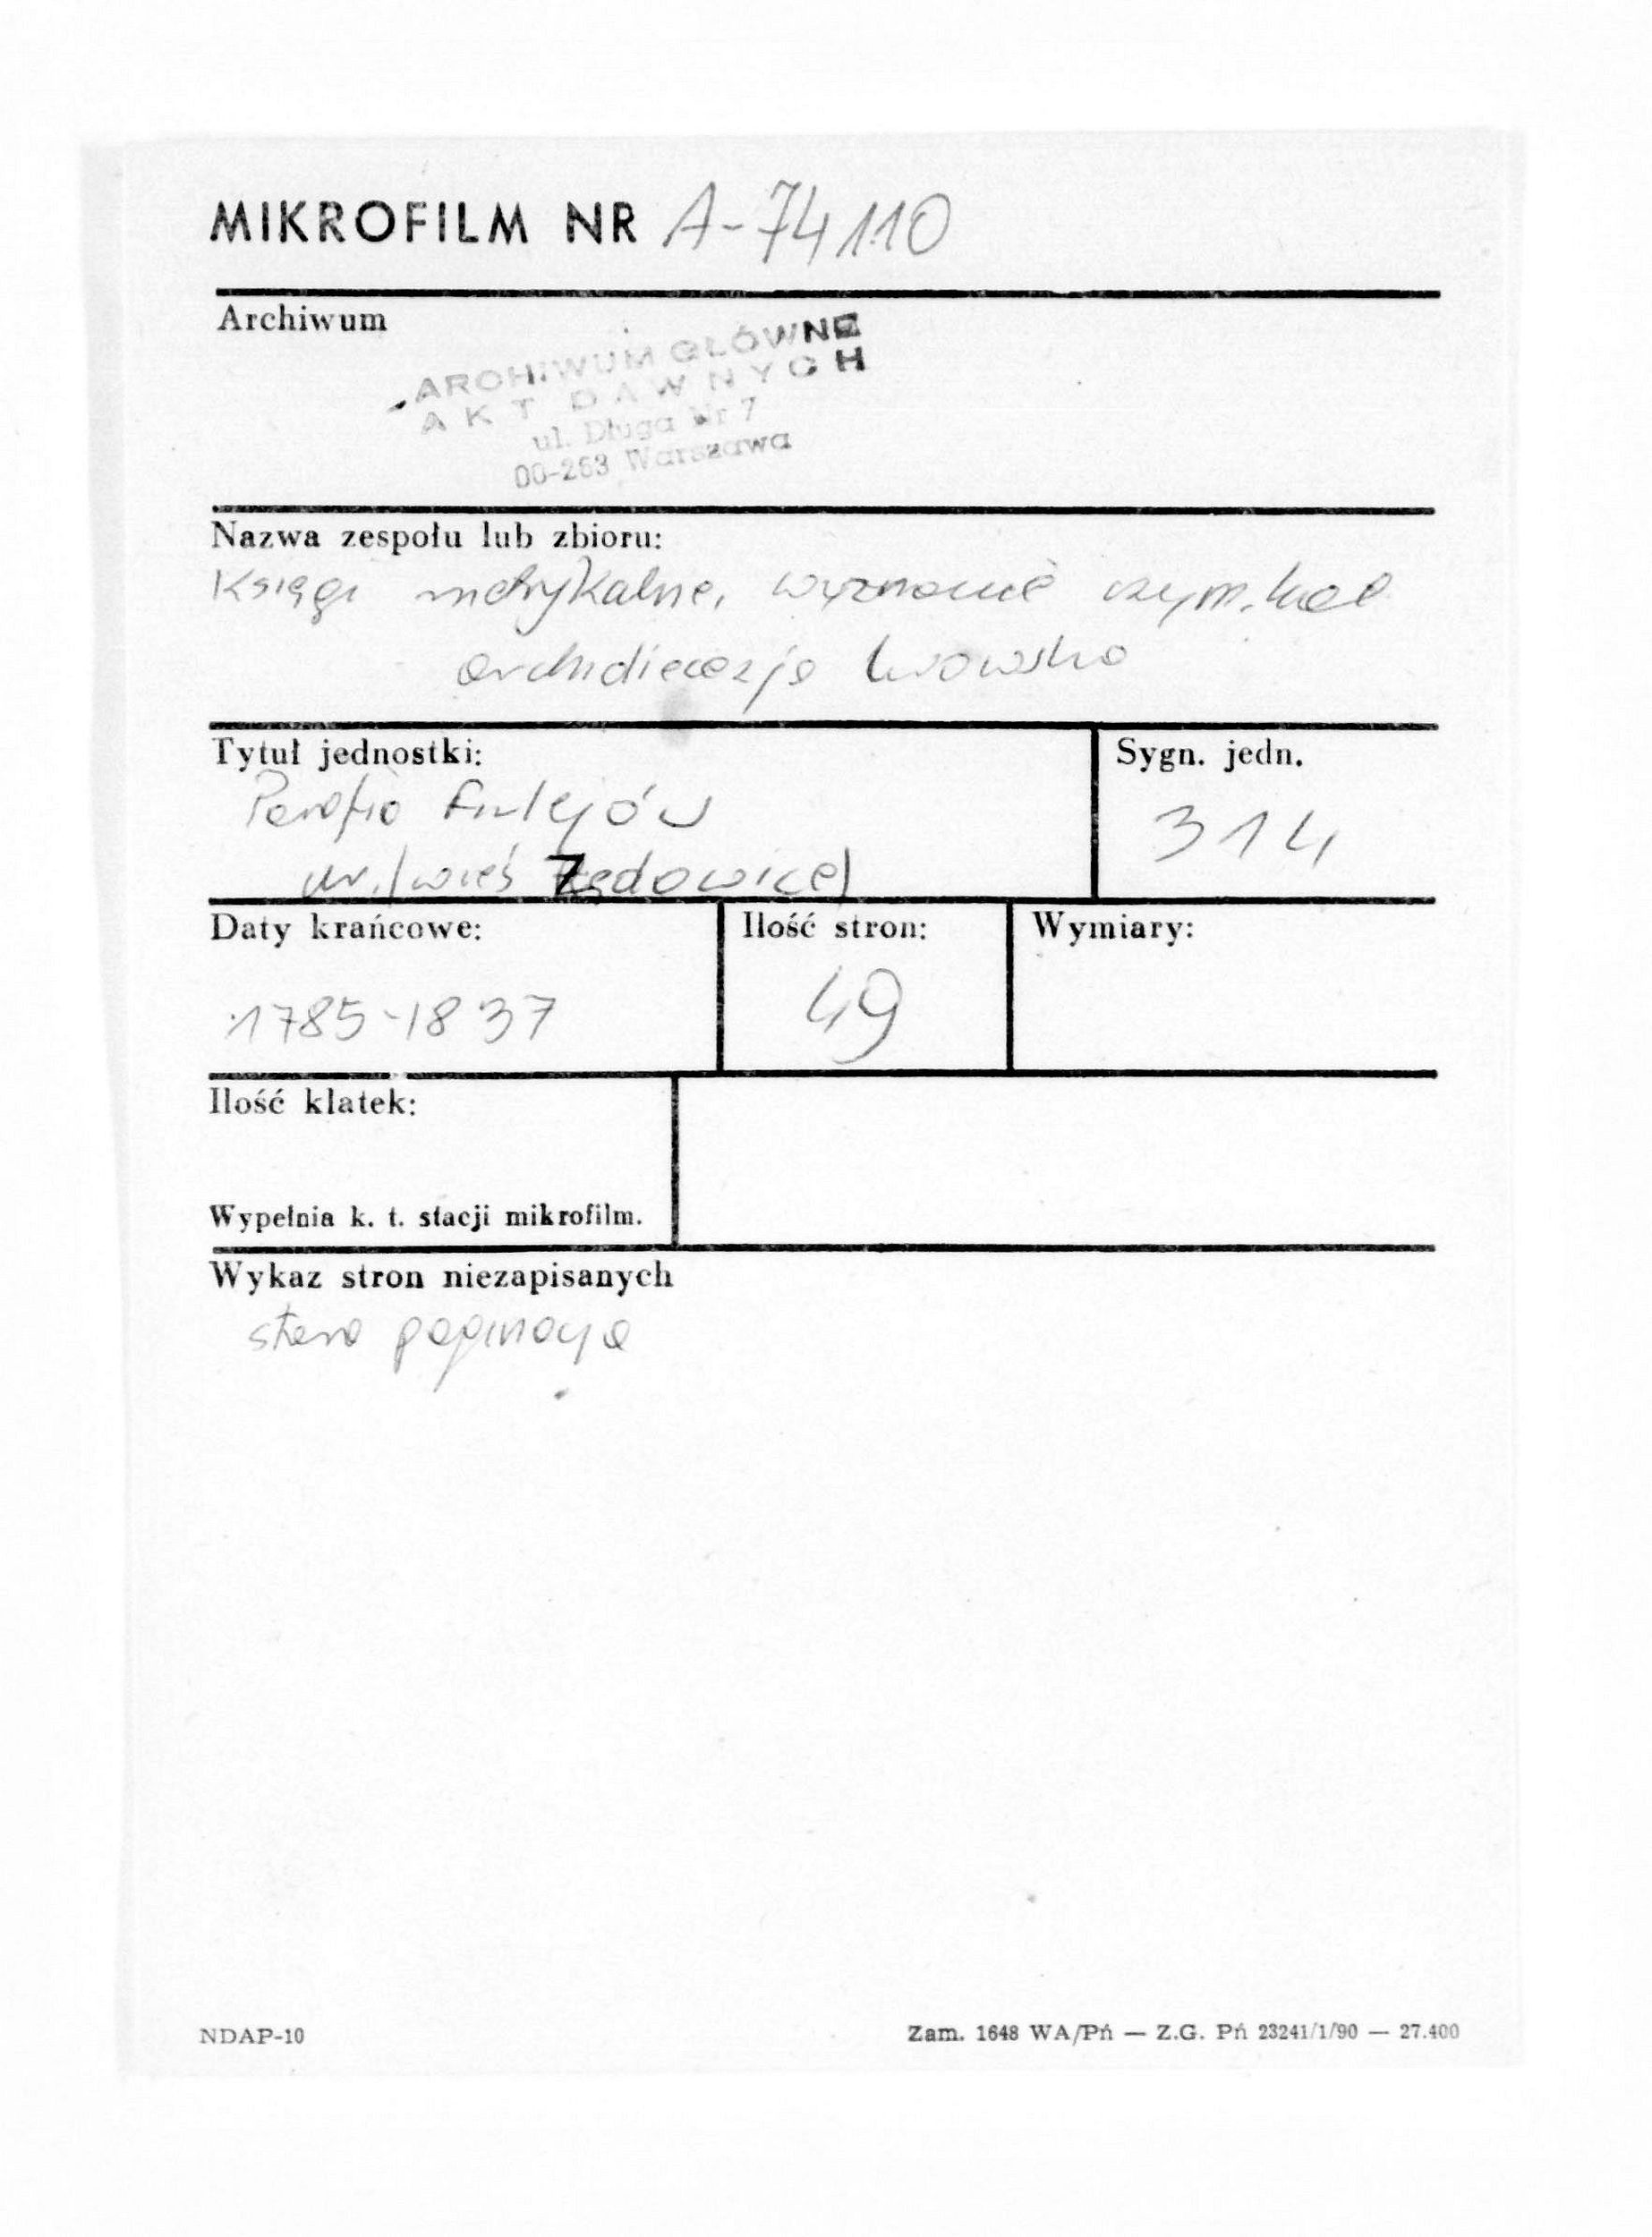 MIKROFILM NR A-74110
Archiwum
ARCHIWUM GŁÓWNE
AKT DAWNYCH
ul. Długa Nr 7
00-263 Warszawa
Nazwa zespołu lub zbioru:
Księgi metrykalne, wyznanie rzym. kat
archidiecezja lwowska
Tytuł jednostki:
Parafia Firlejów
ur. (wieś Zędowice)
Sygn. jedn.
314
Daty krańcowe:
1785-1837
Ilość stron:
49
Wymiary:
Ilość klatek:
Wypełnia k. t. stacji mikrofilm.
Wykaz stron niezapisanych
stara paginacja
NDAP-10
Zam. 1648 WA/Pń — Z.G. Pń 23241/1/90 — 27.400